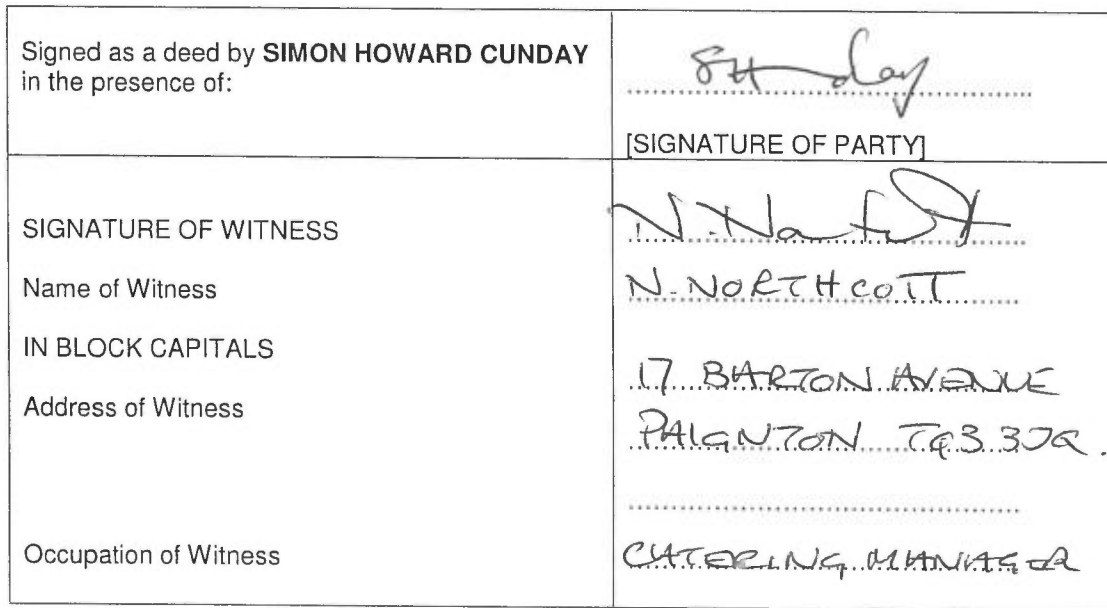 Signed as a deed by SIMON HOWARD CUNDAY
in the presence of:
[SIGNATURE OF PARTY]
SIGNATURE OF WITNESS
Name of Witness
N. NORTHCOTT
IN BLOCK CAPITALS
17 BARTON AVENUE
Address of Witness
PAIGNTON TQ3 3JQ.
Occupation of Witness
CATERING MANAGER